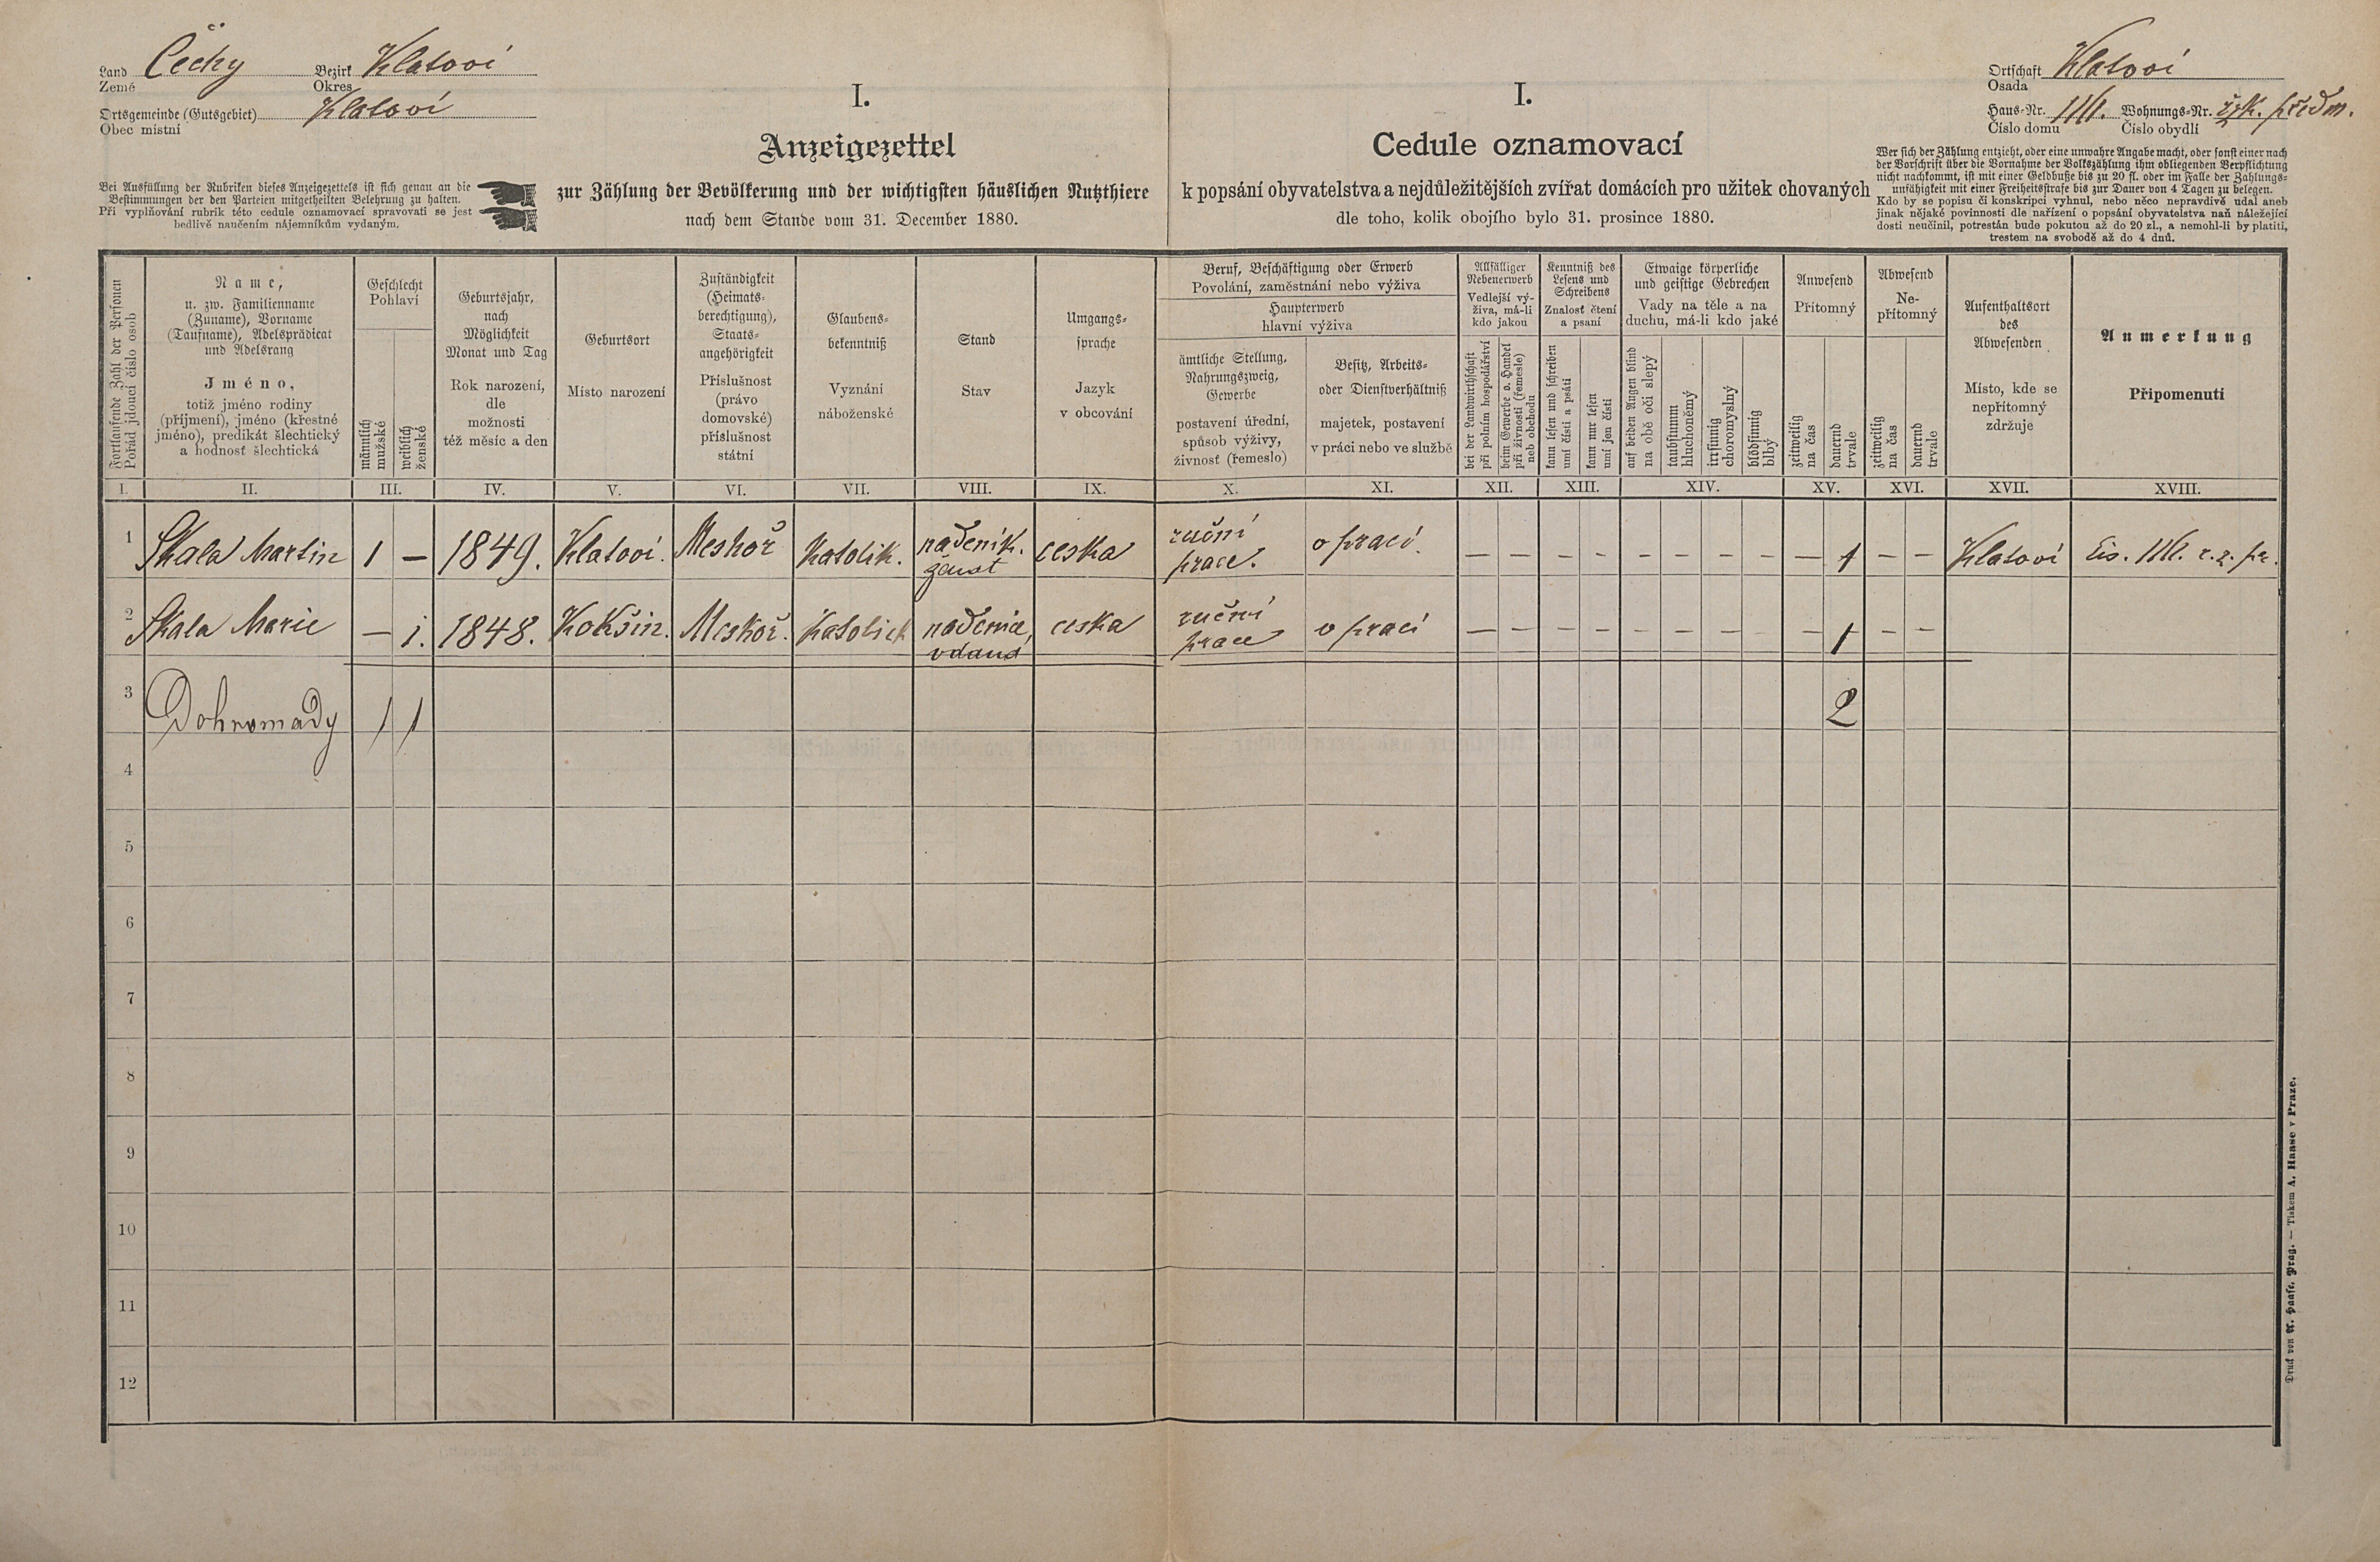 Land Čechy Bezirk Klatovi
Země Okres
Ortsgemeinde (Gutsgebiet) Klatovi
Obec místní
Bei Ausfüllung der Rubriken dieses Anzeigezettels ist sich genau an die
Bestimmungen der den Parteien mitgetheilten Belehrung zu halten.
Při vyplňování rubrik této cedule oznamovací spravovati se jest
bedlivě naučením nájemníkům vydaným.
I.
Anzeigezettel
zur Zählung der Bevölkerung und der wichtigsten häuslichen Nutzthiere
nach dem Stande vom 31. December 1880.
I.
Cedule oznamovací
k popsání obyvatelstva a nejdůležitějších zvířat domácích pro užitek chovaných
dle toho, kolik obojího bylo 31. prosince 1880.
Ortschaft Klatovi
Osada
Haus-Nr. Wohnungs-Nr. předm.
Číslo domu Číslo obydlí
Wer sich der Zählung entzieht, oder eine unwahre Angabe macht, oder sonst einer nach
der Vorschrift über die Vornahme der Volkszählung ihm obliegenden Verpflichtung
nicht nachkommt, ist mit einer Geldbuße bis zu 20 fl. oder im Falle der Zahlungs-
unfähigkeit mit einer Freiheitsstrafe bis zur Dauer von 4 Tagen zu belegen.
Kdo by se popisu či konskripci vyhnul, nebo něco nepravdivě udal aneb
jinak nějaké povinnosti dle nařízení o popsání obyvatelstva naň náležející
dosti neučinil, potrestán bude pokutou až do 20 zl., a nemohl-li by platiti,
trestem na svobodě až do 4 dnů.
Fortlaufende Zahl der Personen
Pořád jdoucí číslo osob
Name,
u. zw. Familienname
(Zuname), Vorname
(Taufname), Adelsprädicat
und Adelsrang
Jméno,
totiž jméno rodiny
(příjmení), jméno (křestné
jméno), predikát šlechtický
a hodnosť šlechtická
Geschlecht
Pohlaví
männlich
mužské
weiblich
ženské
Geburtsjahr,
nach
Möglichkeit
Monat und Tag
Rok narození,
dle
možnosti
též měsíc a den
Geburtsort
Místo narození
Zuständigkeit
(Heimats-
berechtigung),
Staats-
angehörigkeit
Příslušnost
(právo
domovské)
příslušnost
státní
Glaubens-
bekenntniß
Vyznání
náboženské
Stand
Stav
Umgangs-
sprache
Jazyk
v obcování
Beruf, Beschäftigung oder Erwerb
Povolání, zaměstnání nebo výživa
Haupterwerb
hlavní výživa
ämtliche Stellung,
Nahrungszweig,
Gewerbe
postavení úřední,
spůsob výživy,
živnosť (řemeslo)
Besitz, Arbeits-
oder Dienstverhältniß
majetek, postavení
v práci nebo ve službě
Allfälliger
Nebenerwerb
Vedlejší vý-
živa, má-li
kdo jakou
bei der Landwirthschaft
při polním hospodářství
beim Gewerbe o. Handel
při živnosti (řemesle)
neb obchodu
Kenntniß des
Lesens und
Schreibens
Znalosť čtení
a psaní
kann lesen und schreiben
umí čísti a psáti
kann nur lesen
umí jen čísti
Etwaige körperliche
und geistige Gebrechen
Vady na těle a na
duchu, má-li kdo jaké
auf beiden Augen blind
na obě oči slepý
taubstumm
hluchoněmý
irrsinnig
choromyslný
blödsinnig
blbý
Anwesend
Přítomný
zeitweilig
na čas
dauernd
trvale
Abwesend
Ne-
přítomný
zeitweilig
na čas
dauernd
trvale
Aufenthaltsort
des
Abwesenden
Místo, kde se
nepřítomný
zdržuje
Anmerkung
Připomenutí
I. II. III. IV. V. VI. VII. VIII. IX. X. XI. XII. XIII. XIV. XV. XVI. XVII. XVIII.
1 Skala Martin 1 – 1849. Klatovi. Meskoř Katolik. naďeník. ženat ceska ruční prace. o praci. – – – – – – – – – 1 – – Klatovi
2 Skala Marie – 1. 1848. Kokšin. Meskoř. Katolick naďenice, vdana ceska ruční prace o praci – – – – – – – – – 1 – –
3 Dohromady 1 1 2
4
5
6
7
8
9
10
11
12
Druck von A. Haase, Prag. — Tiskem A. Haase v Praze.